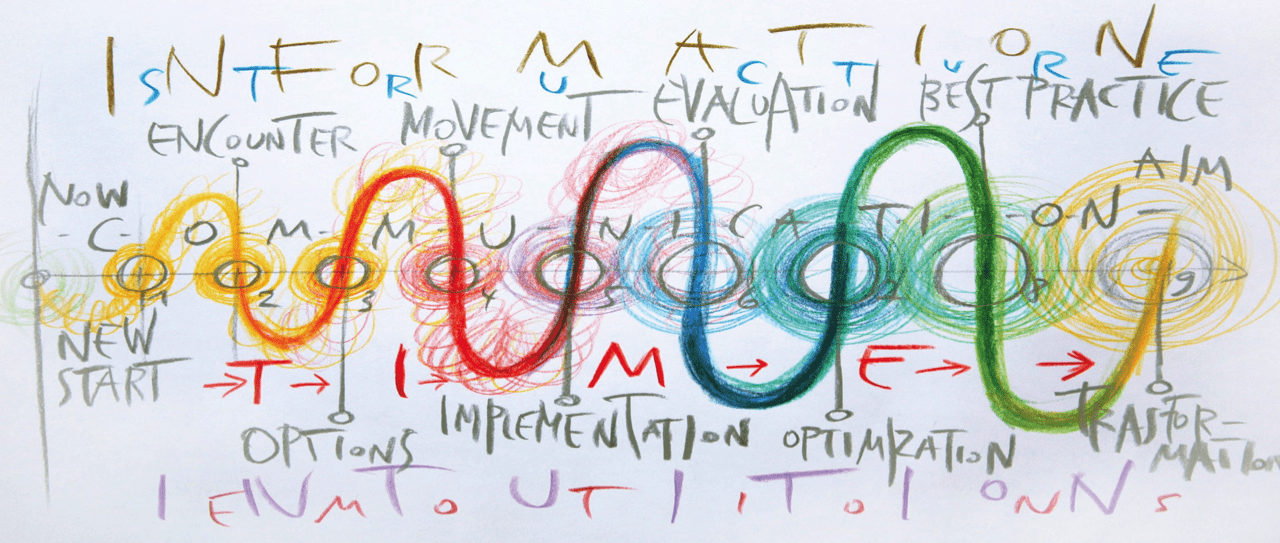 INFORMATION
STRUCTURE
ENCOUNTER MOVEMENT EVALUATION BEST PRACTICE
NOW AIM
- C - O - M - M - U - N - I - C A - T - I - O - N -
1 2 3 4 5 6 7 8 9
NEW
START
→ T → I → M → E → →
OPTIONS IMPLEMENTATION OPTIMIZATION TRASFOR-
MATION
INTUITION
EMOTIONS